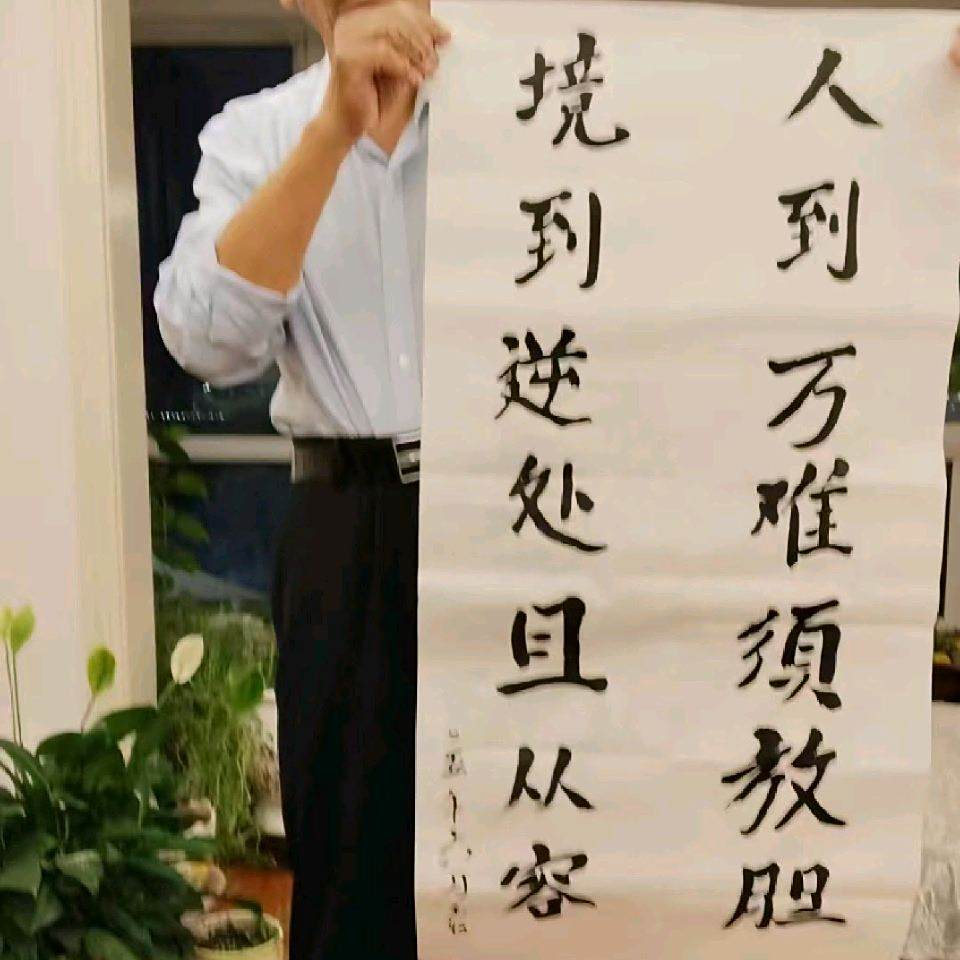 人到万难須放胆
境到逆处且从容